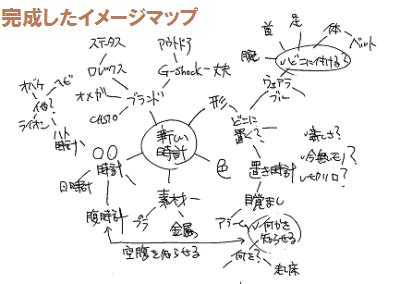 完成したイメージマップ
首
足
体
ベルト
腕
どこに付ける?
ウェアラブル
ステータス
ロレックス
オメガ
CASIO
ブランド
アウトドア
G-shock
丈夫
形
どこに
置く?
オバケ
ヘビ
他?
ライオン
ハト
時計
新しい
時計
色
置き時計
新しさ?
今無モノ?
〇〇
時計
日時計
腹時計
素材
プラ
金属
目覚まし
アラーム
何かを
知らせる
何を?
起床
空腹を知らせる